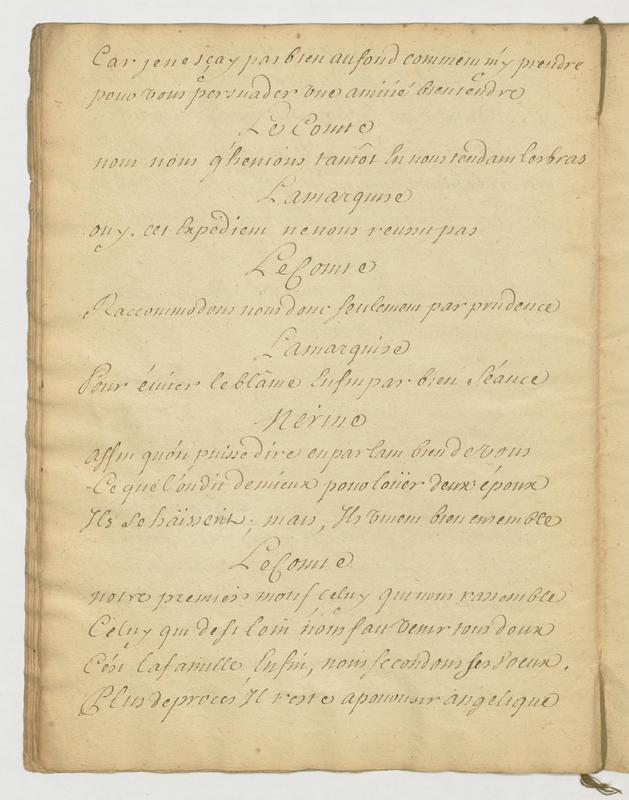 Car je ne sçay pas bien au fond comment m'y prendre
pour vous persuader une amitié bien tendre
Le Comte
nous nous y prenions tantôt En nous tendant les bras
La marquise
ouy. cet Expédient ne nous reussit pas
Le Comte
Raccommodons nous donc seulement par prudence
La marquise
Pour éviter le blâme Enfin par bien séance
Nérine
affin qu'on puisse dire en parlant bien de vous
Ce que l'on dit de mieux pour loüer deux époux
Ils se haïssent; mais, Ils vivent bien ensemble
Le Comte
notre premier motif celuy qui nous rassemble
Celuy qui de si loin nous fait venir tous deux
C'est la famille Enfin, nous secondons ses voeux.
Plus de procès Il reste a pourvoir angelique